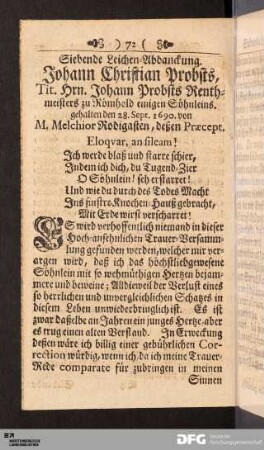 ) 72 (
Siebende Leichen-Abdanckung.
Johann Christian Probsts,
Tit. Hrn. Johann Probsts Renth-
meisters zu Römhold einigen Söhnleins.
gehalten den 28. Sept. 1690. von
M. Melchior Rodigasten, deßen Præcept.
Eloqvar, an sileam!
Jch werde blaß und starre schier,
Jndem ich dich, du Tugend-Zier
O Söhnlein! seh erstarret!
Und wie du durch des Todes Macht
Jns finstre Knochen-Hauß gebracht,
Mit Erde wirst verscharret!
ES wird verhoffentlich niemand in dieser
Hoch-ansehnlichen Trauer-Versamm-
lung gefunden werden, welcher mir ver-
argen wird, daß ich das höchstliebgewesene
Söhnlein mit so wehmüthigen Hertzen bejam-
mere und beweine; Aldieweil der Verlust eines
so herrlichen und unvergleichlichen Schatzes in
diesem Leben unwiederbringlich ist. Es ist
zwar dasselbe an Jahren ein junges Hertze, aber
es trug einen alten Verstand. Jn Erweckung
deßen wäre ich billig einer gebührlichen Cor-
rection würdig, wenn ich, da ich meine Trauer-
Rede comparate für zubringen in meinen
Sinnen
WÜRTTEMBERGISCHE
LANDESBIBLIOTHEK
DFG Deutsche
Forschungsgemeinschaft